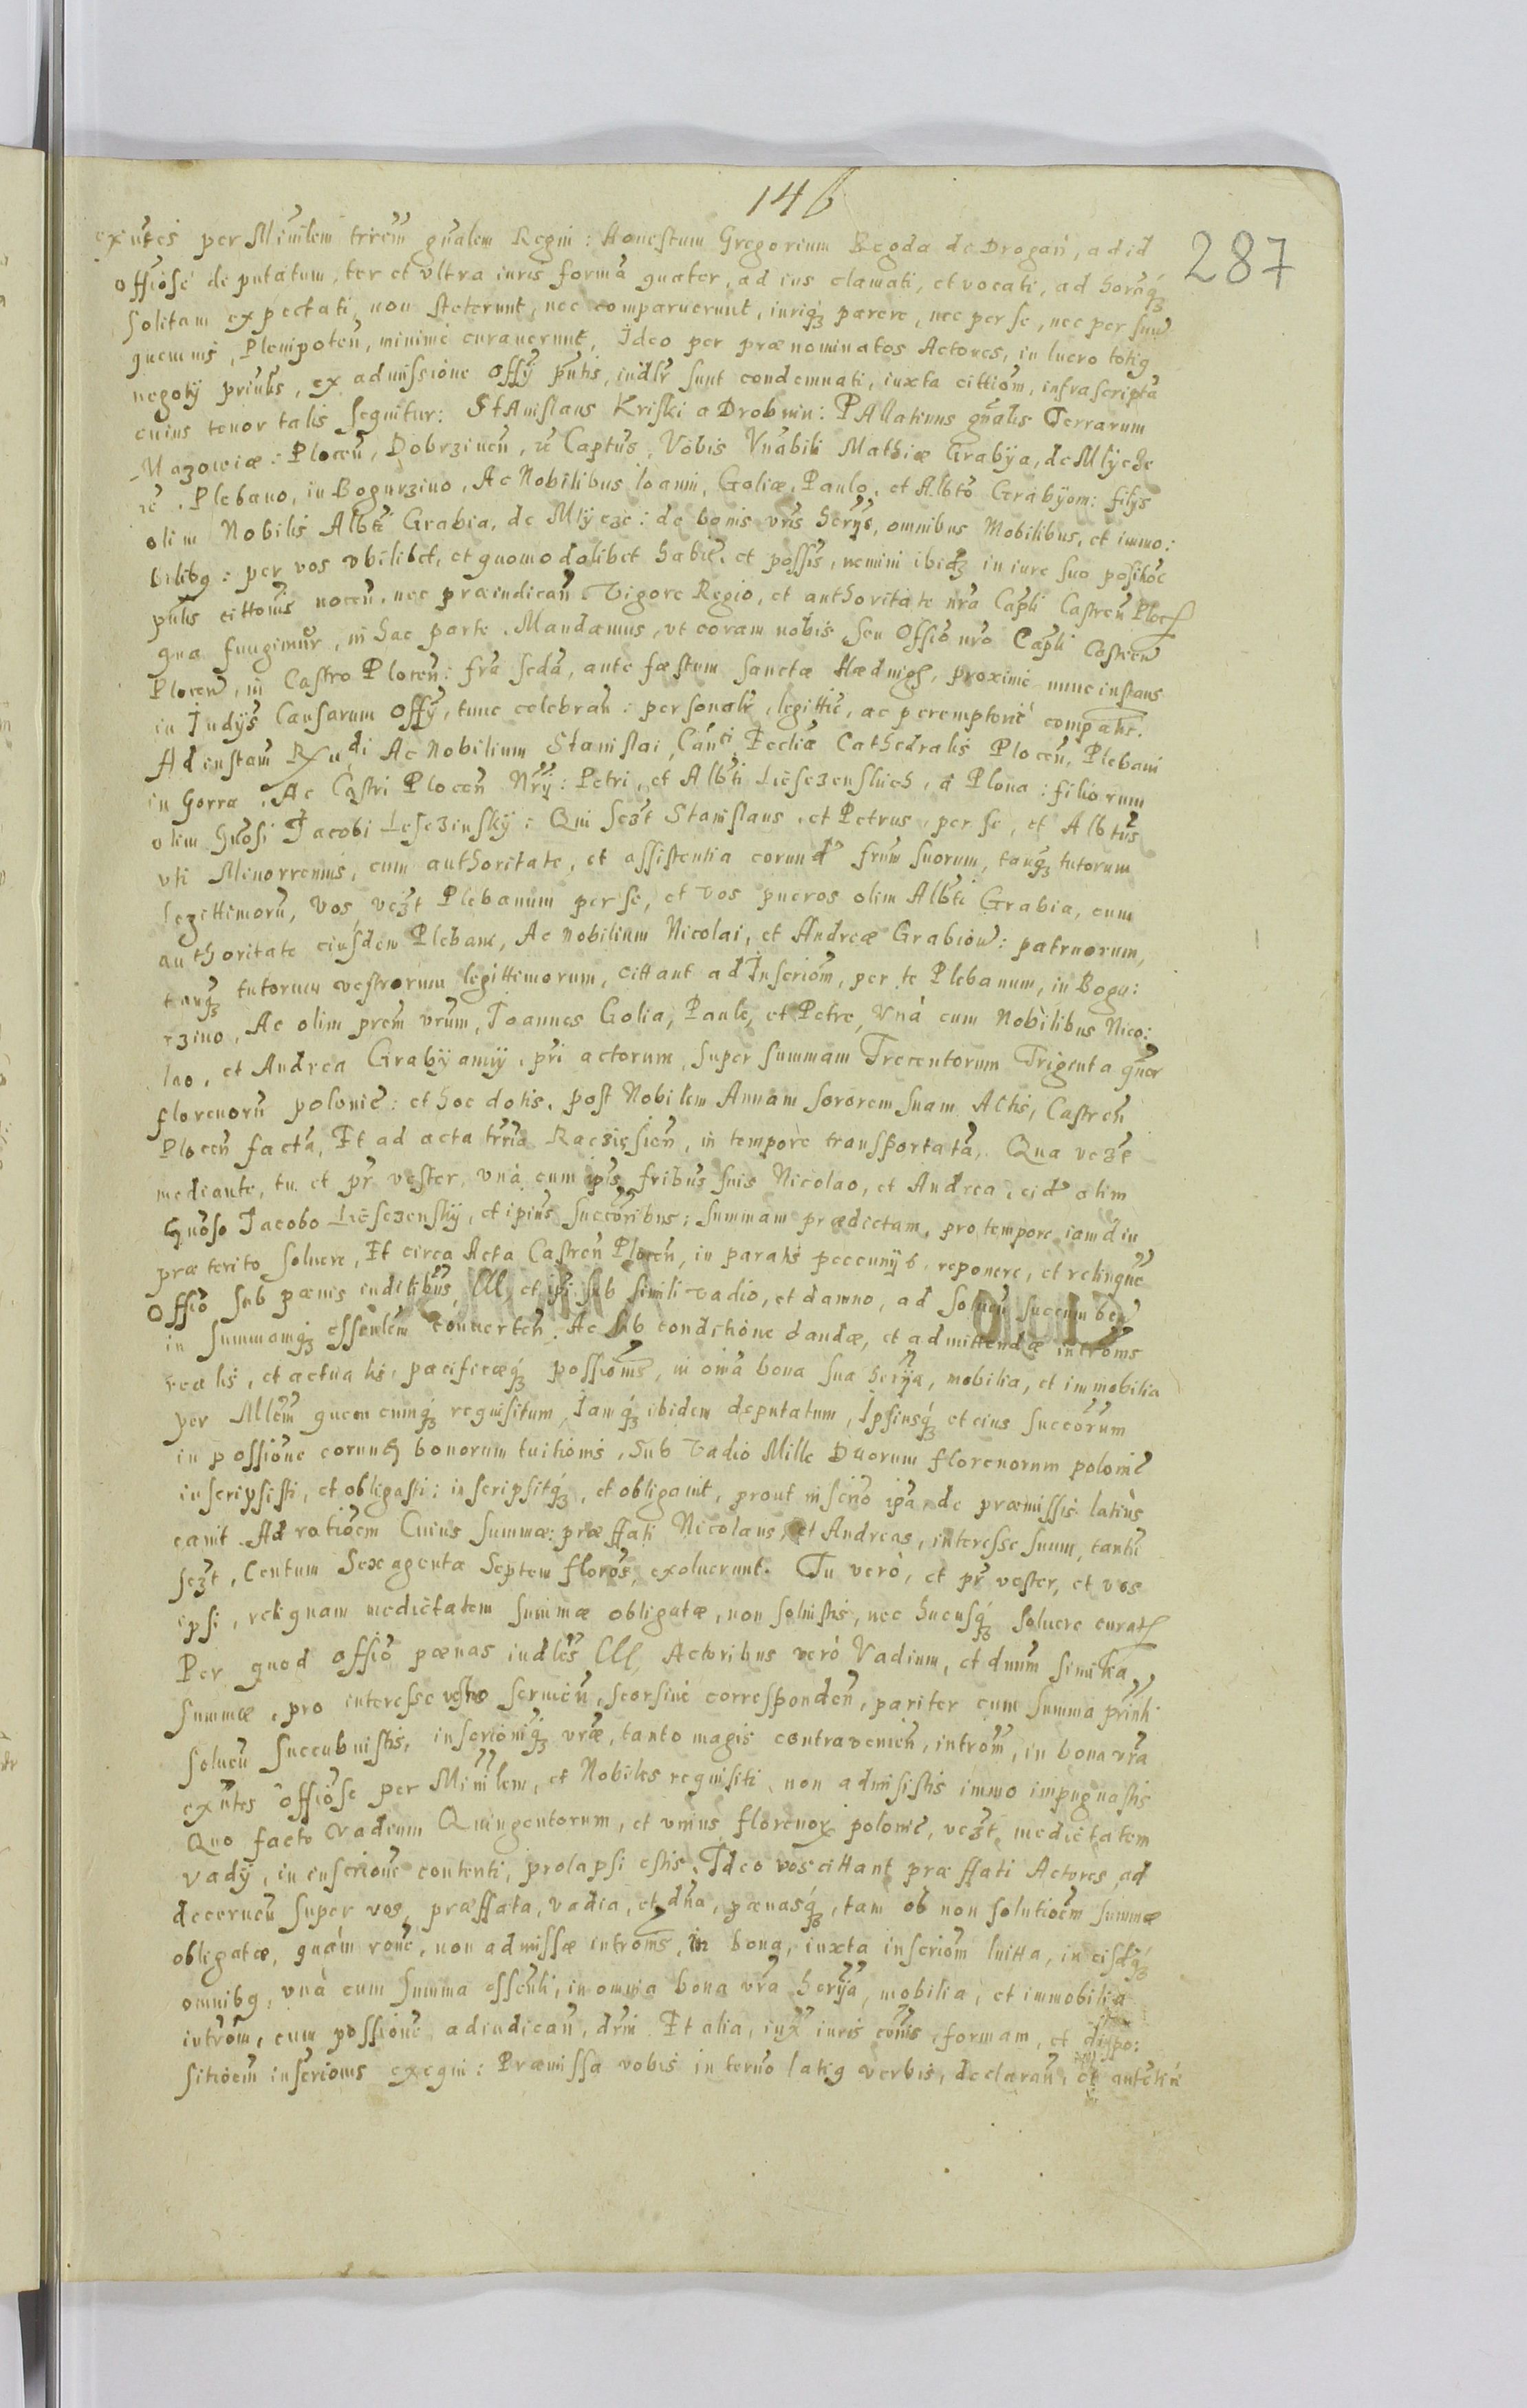 146
287
exntes per Minlem trrem gnalem Regni: Honestum Gregorium Begda de Drogan, ad id
Offiose deputatum, ter et ultra iuris forma quater, ad ius clamati, et vocati, ad horaqz
solitam expectati, non steterunt, nec comparuerunt, iuriqz parere, nec per se, nec per suu
quemvis, Plenipoten, minime curaverunt, Ideo per prænominatos Actores, in lucro totig
negoty prinlis, ex admissione Offy pntis, indlr sunt condemnati, iuxta cittiom, infrascripta
cuius tenor talis sequitur: Stanislaus Kriski a Drobnin: PAllatinus gnalis Terrarum
Mazowiæ: Plocen, Dobrzinen, rc Captus, Vobis Vnabili Mathiæ Grabya, de Mlyche
rc. Plebano, in Bogurzino, Ac Nobilibus Ioanni, Goliæ, Paulo, et Albto Grabyom: filys
olim Nobilis Albti Grabia, de Mlycze: de bonis vris herys, omnibus Mobilibus, et immo:
bilibg: per vos vbilibet, et quomodolibet habit. et possis, nemini ibidz in iure suo posihoc
pntis cittonis nocen, nec præiudican Vigore Regio, et authoritate nra Capli Castren Ploc
qua fungimur, in hac parte. Mandamus, vt coram nobis, seu Offio nro Capli Castren
Plocen, in Castro Plocen: fra seda, ante fæstum sanctæ Hædwigs, proxime nunc instans
in Iudys Causarum Offy, tunc celebran: personalr, legittie, ac peremptorie compatis.
Ad instam Rxndi Ac Nobilium Stanislai, Canci Ecclia Cathedralis Plocen, Plebani
in Gorra, Ac Castri Plocen Nry: Petri, et Albti Lieseczenskich, a Plona: filiorum
olim Gnosi Jacobi Lesczinsky: Qui sczt Stanislaus, et Petrus, per se, et Albtus
vti Minorrennis, cum authoritate, et assistentia eorund frum suorum, tanqz tutorum
legittimoru, Vos, vczt Plebanum per se, et vos pueros olim Albti Grabia, cum
authoritate eiusdem Plebani, Ac nobilium Nicolai, et Andreæ Grabiow: patruorum,
tanqz tutorum vestrorum legittimorum, cittant ad Inscriom, per te Plebanum, in Bogu:
rzino, Ac olim prem vrum, Joannes Golia, Paule, et Petre, Vnà cum Nobilibus Nico:
lao, et Andrea Grabyamy, pri actorum, super summam Trecentorum Triginta quor
florenoru polonic: et hoc dotis, post Nobilem Annam sororem suam Actis, Castren
Plocen facta, Et ad acta trria Racziesien, in tempore transportata, Qua vczt
mediante, tu et pr vester, vnà cum ipis fribus suis Nicolao, et Andrea, eid olim
Gnoso Jacobo Liesczensky, et ipius successoribus: summam prædictam, pro tempore iam diu
præterito solvere, Et circa Acta Castren Plocen, in paratis peccunyb. reponere, et relinque
Offio sub pænis indilibus, et ipi sub simili vadio, et damno, ad solven succumben
in summamqz essenlem converten. Ac sub conditione dandæ, et admittendæ introms
realis, et actualis, pacificæqz possionis, in oma bona sua herya, mobilia, et immobilia
per Mllem quemcumqz requisitum, Iamqz ibidem deputatum, Ipsiusqz et eius succorum
in possione eorund bonorum tuitionis, sub vadio Mille Duorum florenorum polonic
inscripsisti, et obligasti: inscripsitqz, et obligavit, prout inscrio ipa, de præmissis latius
canit. Ad ratioem Cuius Summæ: præffati Nicolaus, et Andreas, interesse suum, tantu
sczt, Centum Sexaginta Septem floros, exoluerunt. Tu verò, et pr vester, et vos
ipsi, reliquam medietatem summæ obligatæ, non solvistis, nec hucusqz solvere curatis
Per quod offio pænas indles Actoribus verò Vadium, et dnum similia,
Summæ, pro interesse vestro servien, seorsive corresponden, pariter cum summa prinli
solven succubuistis, inscrioniqz vræ, tanto magis contravenien, introm, in bona vra
exntes offiose per Minilem, et Nobiles requisiti, non admisistis immo impugnastis
Quo facto vadium Quingentorum, et vnius florenor polonic, vczt medietatem
vady, in inscrione contenti, prolapsi estis. Ideo vos cittant præffati Actores, ad
decernen super vos, præffata, vadia, et dna, pænasqz, tam ob non solutioem summæ
obligatæ, quàm rone, non admissæ introms, in bona, iuxta inscriom luitta, in eisdqz
omnibg, vnà cum summa essenli, in omnia bona vra herya, mobilia, et immobilia
introm, cum possione adiudican, drni Et alia, iux iuris coms formam, et dispo:
sitioem inscrionis exequi: Præmissa vobis in termo latig verbis, declaran, et